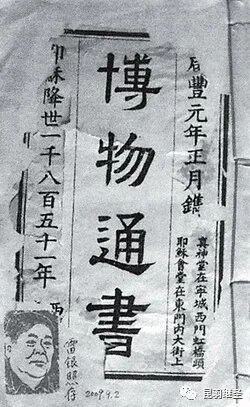 咸豐元年正月鐫
真神堂在寧城西門虹橋頭
耶穌會堂在東門內大街上
博物通書
耶穌降世一千八百五十一年
2009.4.2
昆羽继圣